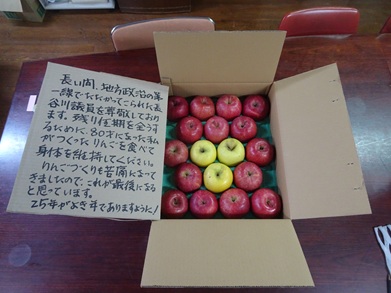 長い間、地方政治の第
一線でたたかってこられた長
谷川議員を尊敬しており
ます。残り任期を全うす
るために、80才になった私
がつくったりんごを食べて
身体を維持してください。
りんごづくりも苦痛になって
きましたので、これが最後になる
と思っています。
25年がよき年でありますように!